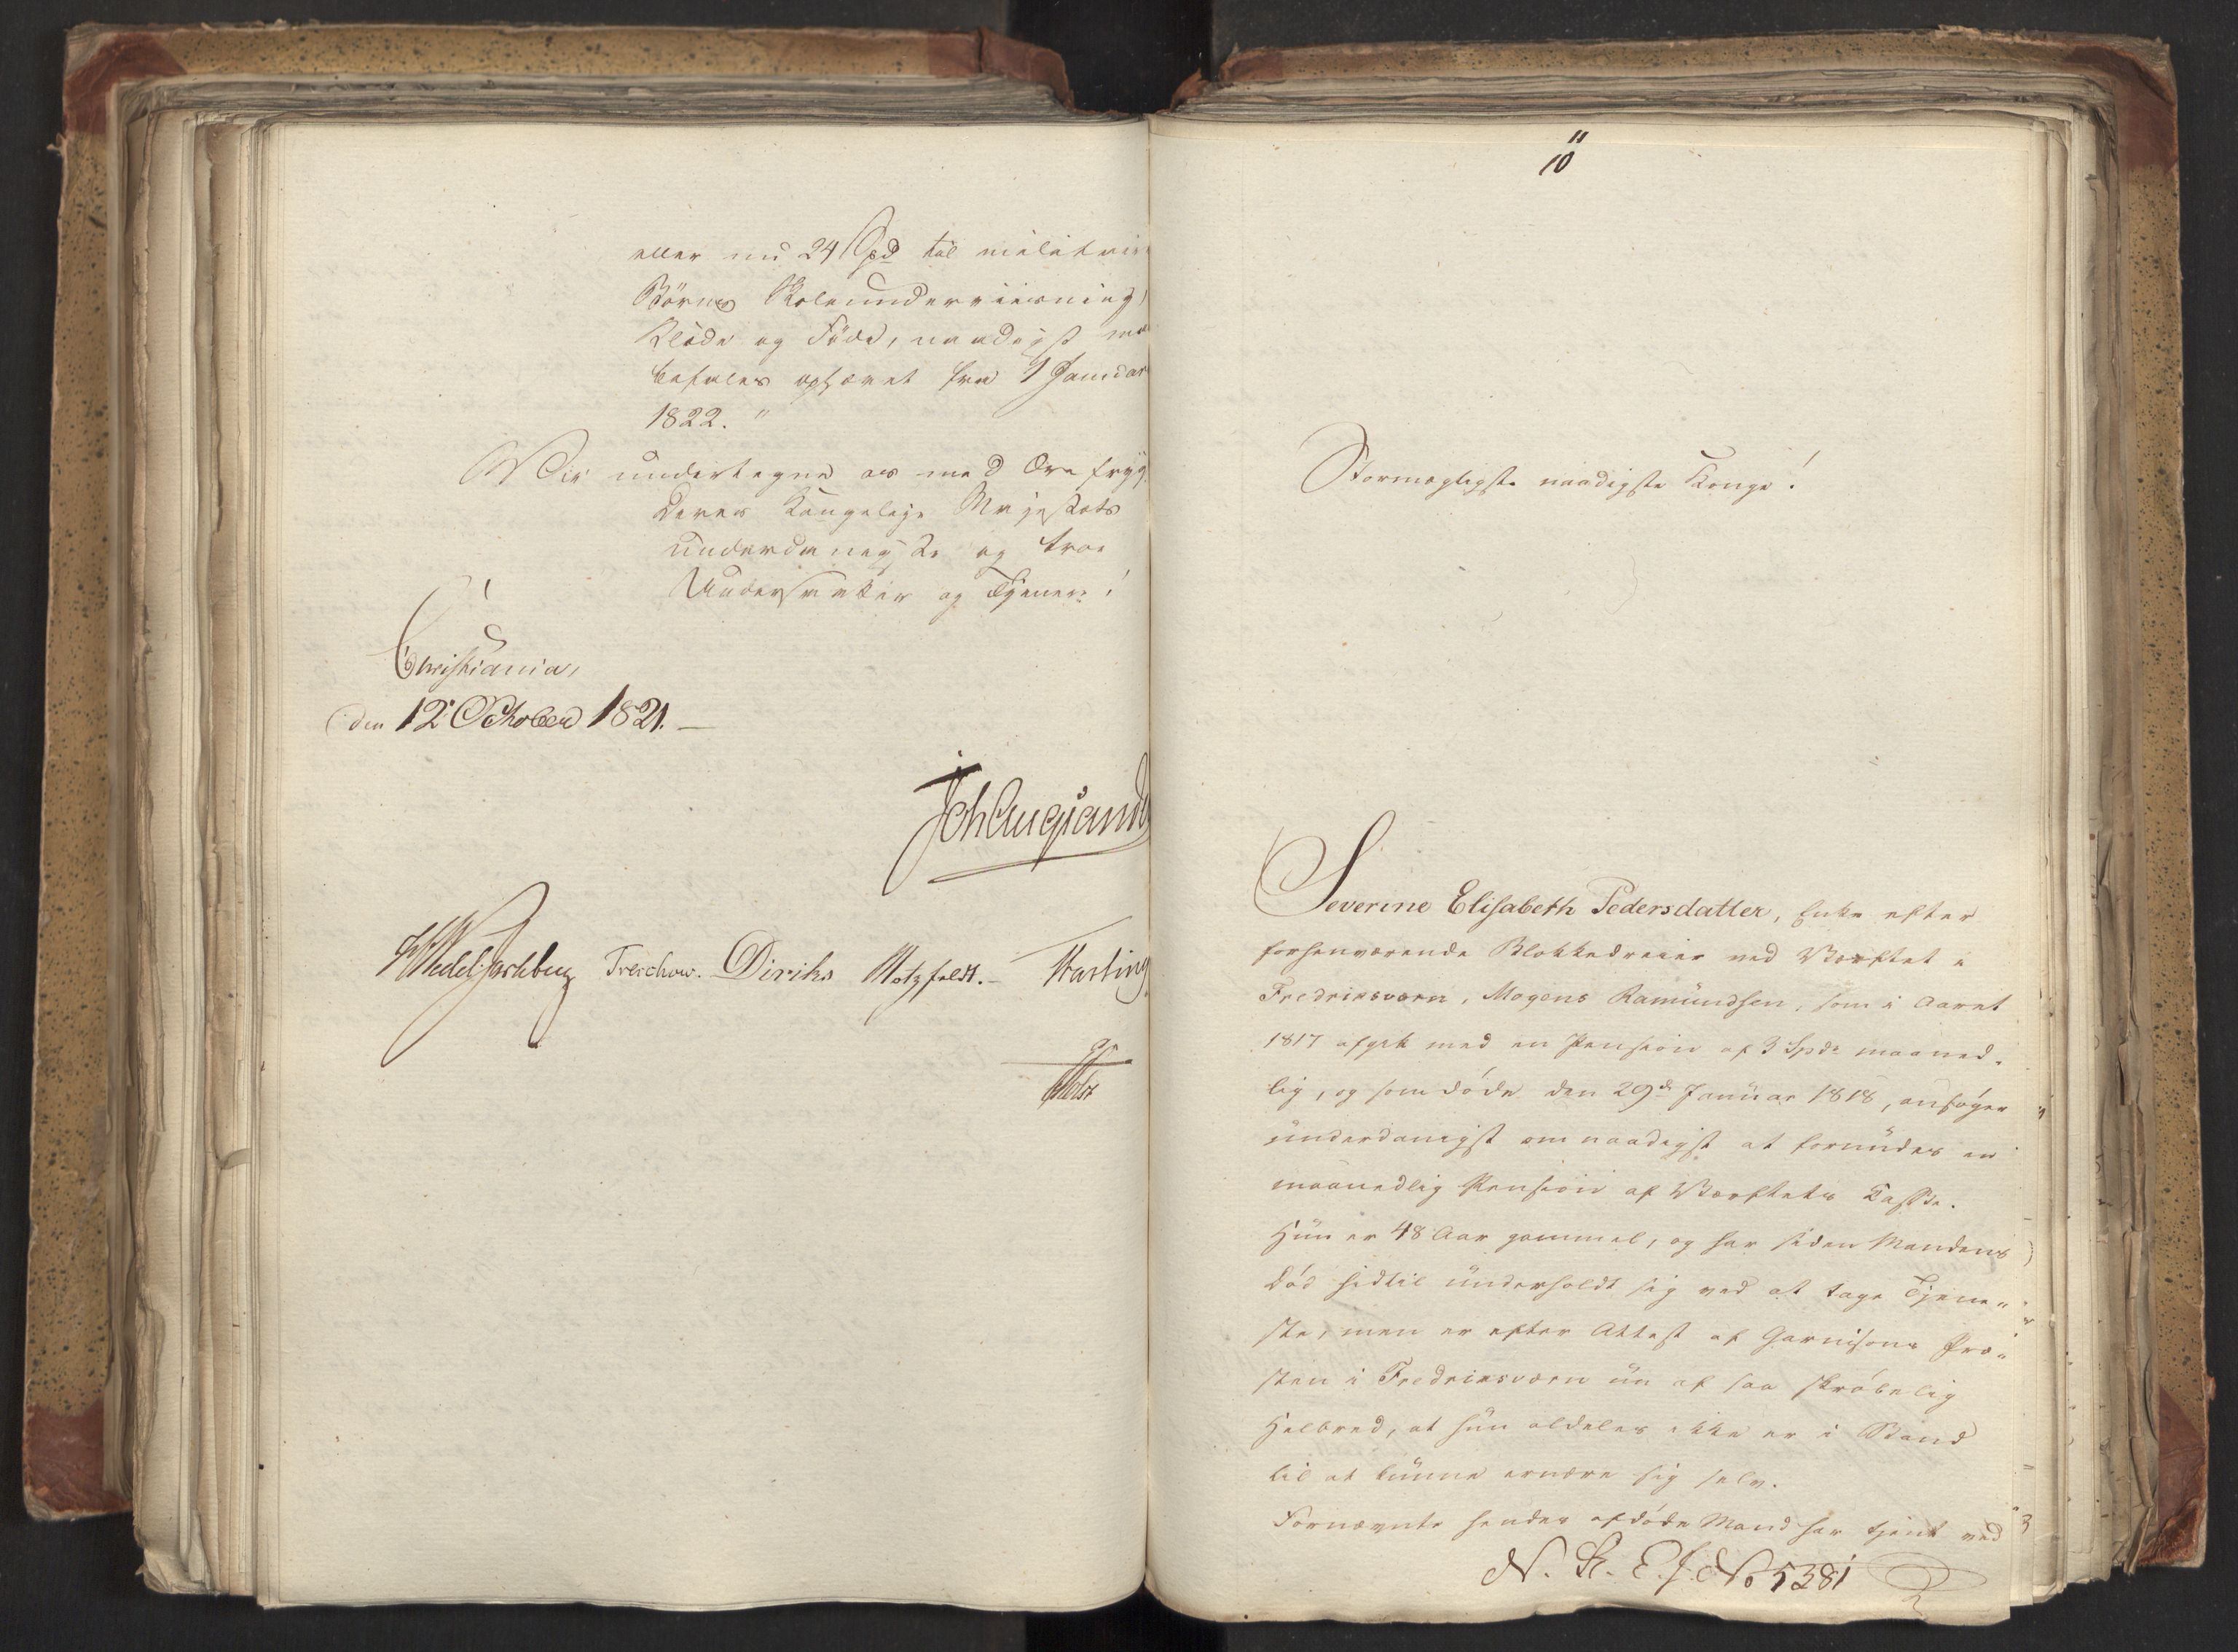 eller nu 24 Spd til militaire
Börns Skoleunderviisning,
Klæde og Föde, naadigst
befales ophævet fra 1 Januar
1822."
Vi undertegne os med Ærefrygt
Deres Kongelige Majestæts
underdanigste og troe
Undersaatter og Tjenere!
Christiania,
den 12 October 1821.
Joh Aug Sandels
Wedel Jarlsberg Treschow. Diriks Motzfeldt. Fasting
Holst
11
10
Stormægtigste naadigste Konge!
Severine Elisabeth Pedersdatter, Enke efter
forhenværende Blokkedreier ved Værftet i
Fredriksværn, Mogens Ramundsen, som i Aaret
1817 afgik med en Pension af 3 Spd maaned-
lig, og som döde den 29de Januar 1818, ansöger
underdanigst om naadigst at forundes en
maanedlig Pension af Værftets Casse.
Hun er 48 Aar gammel, og har siden Mandens
Död hidtil underholdt sig ved at tage Tjene-
ste, men er efter Attest af Garnisons Præ-
sten i Fredriksværn nu af saa skröbelig
Helbred, at hun aldeles ikke er i Stand
til at kunne ernære sig selv.
Fornævnte hendes afdöde Mand har tjent ved
N. St. E. J. No 5381